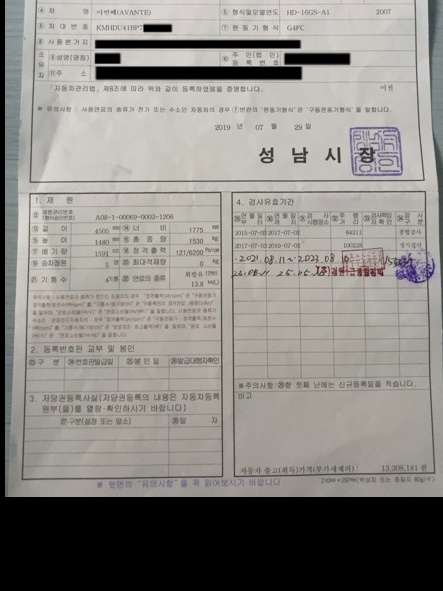 ④ 차 명 아반떼(AVANTE) ⑤ 형식및모델연도 HD-16GS-A1 2007
⑥ 차 대 번 호 KMHDU41BP7 ⑦ 원 동 기 형 식 G4FC
⑧ 사 용 본 거 지
소 유 자 ⑨ 성명(명칭) ⑩ 주 민(법 인) 등 록 번 호
⑪ 주 소
「자동차관리법」 제8조에 따라 위와 같이 등록하였음을 증명합니다. 이전
※ 유의사항 : 사용연료의 종류가 전기 또는 수소인 자동차의 경우 ⑦번란의 '원동기형식'은 '구동전동기형식'을 말합니다.
2019 년 07 월 29 일
성 남 시 장
1. 제 원
제원관리번호 (형식승인번호) A08-1-00069-0003-1206
길 이 4505 mm 너 비 1775 mm
높 이 1480 mm 총 중 량 1530 kg
배 기 량 1591 cc 정 격 출 력 121/6200 Ps/rpm
승차정원 5 명 최대적재량 0 kg
기 통 수 4기통 연료의 종류 휘발유(무연) 13.8 km/L
2. 등록번호판 교부 및 봉인
구 분 번호판발급일 봉 인 일 발급대행자확인
3. 저당권등록사실(저당권등록의 내용은 자동차등록
원부(을)를 열람·확인하시기 바랍니다)
구분(설정 또는 말소) 일 자
4. 검사유효기간
연월일 부터 연월일 까지 검 사 시행장소 주 행 거 리 검사책임자 확 인 검 사 구 분
2015-07-03 2017-07-02 84211 종합검사
2017-07-03 2019-07-02 100228 정기검사
2021.08.11~2023.08.10
23.08.11 25.05
※주의사항: 첫째 난에는 신규등록일을 적습니다.
비고
자동차 출고(취득)가격(부가세제외): 13,308,181 원
210㎜×297㎜(백상지 또는 중질지 80g/㎡)
※ 뒷면의 "유의사항"을 꼭 읽어보시기 바랍니다.